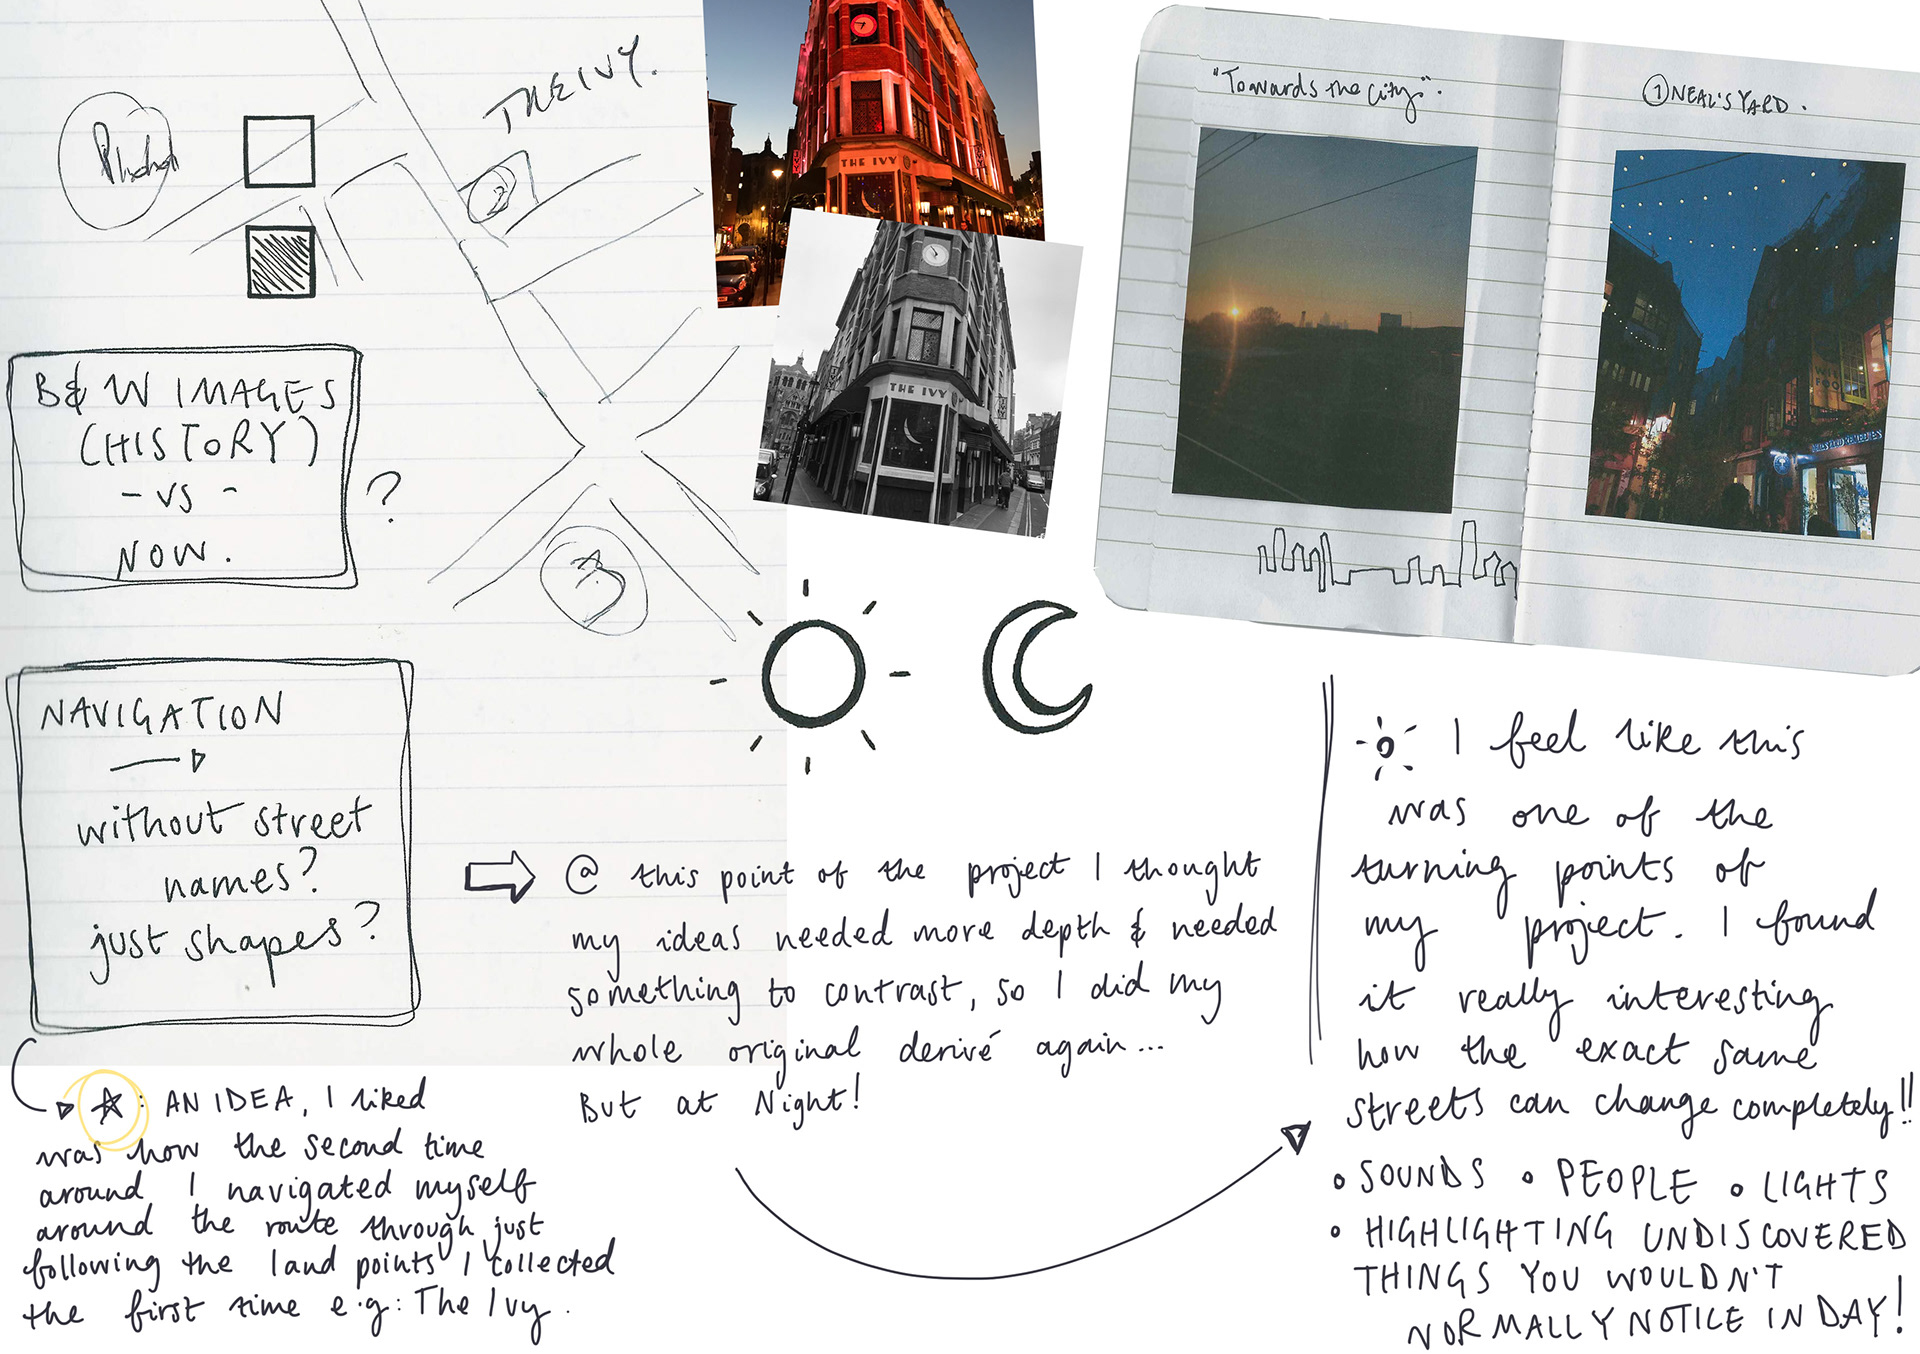 THE IVY.
2
3
B&W IMAGES
(HISTORY)
- VS -
NOW.
?
NAVIGATION
without street
names?
just shapes?
THE IVY
THE IVY
"Towards the City".
① NEAL'S YARD.
@ this point of the project I thought
my ideas needed more depth & needed
something to contrast, so I did my
whole original derivé again...
But at Night!
: AN IDEA, I liked
was how the second time
around I navigated myself
around the route through just
following the land points I collected
the first time e.g: The Ivy.
I feel like this
was one of the
turning points of
my project. I found
it really interesting
how the exact same
streets can change completely!!
• SOUNDS • PEOPLE • LIGHTS
• HIGHLIGHTING UNDISCOVERED
THINGS YOU WOULDN'T
NORMALLY NOTICE IN DAY!